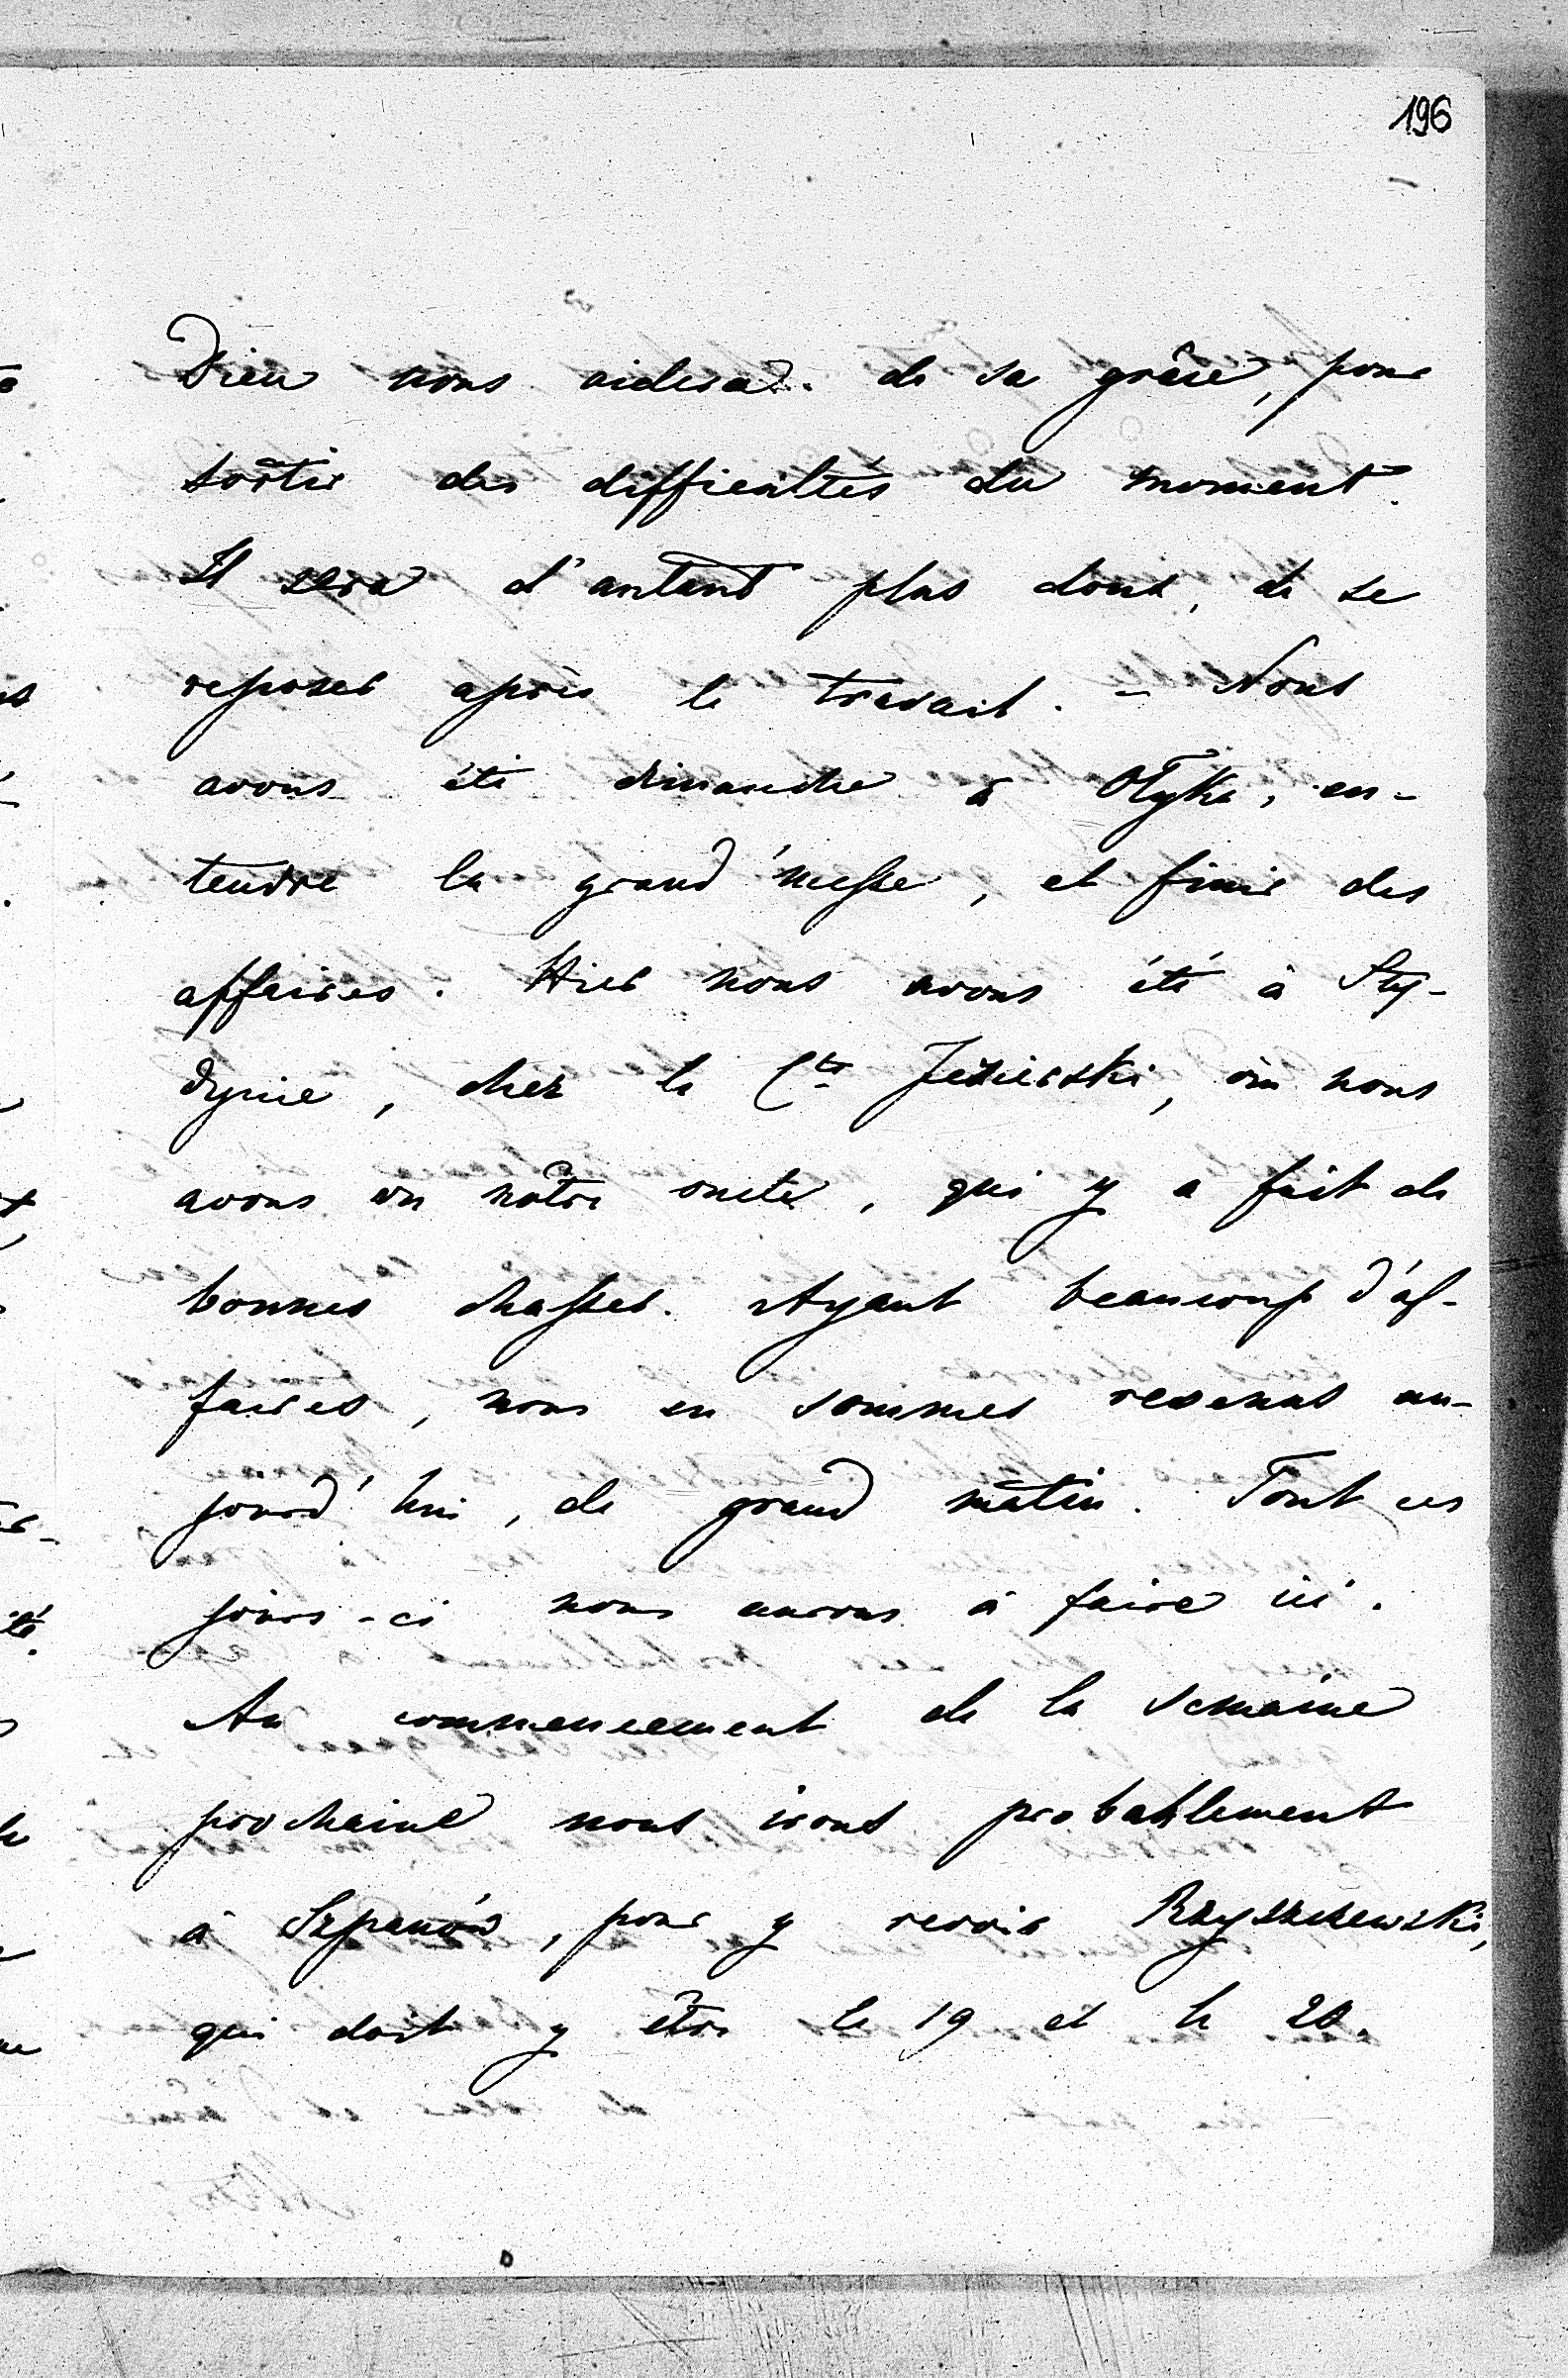 196
Dieu nous aidera de sa grâce, pour
sortir des difficultés du moment.
Il sera d'autant plus doux, de se
reposer après le travail. - Nous
avons été dimanche à Ołyka, en-
tendre la grand'messe, et finir des
affaires. Hier nous avons été à Sty-
dynie, chez le Cte Jezierski, où nous
avons vu nôtre oncle, qui y a fait de
bonnes chasses. Ayant beaucoup d'af-
faires, nous en sommes revenus au-
jourd'hui, de grand matin. Tout ces
jours-ci nous aurons à faire ici.
Au commencement de la semaine
prochaine nous irons probablement
à Szpanów, pour y revoir Rzyszczewski,
qui doit y être le 19 et le 20.